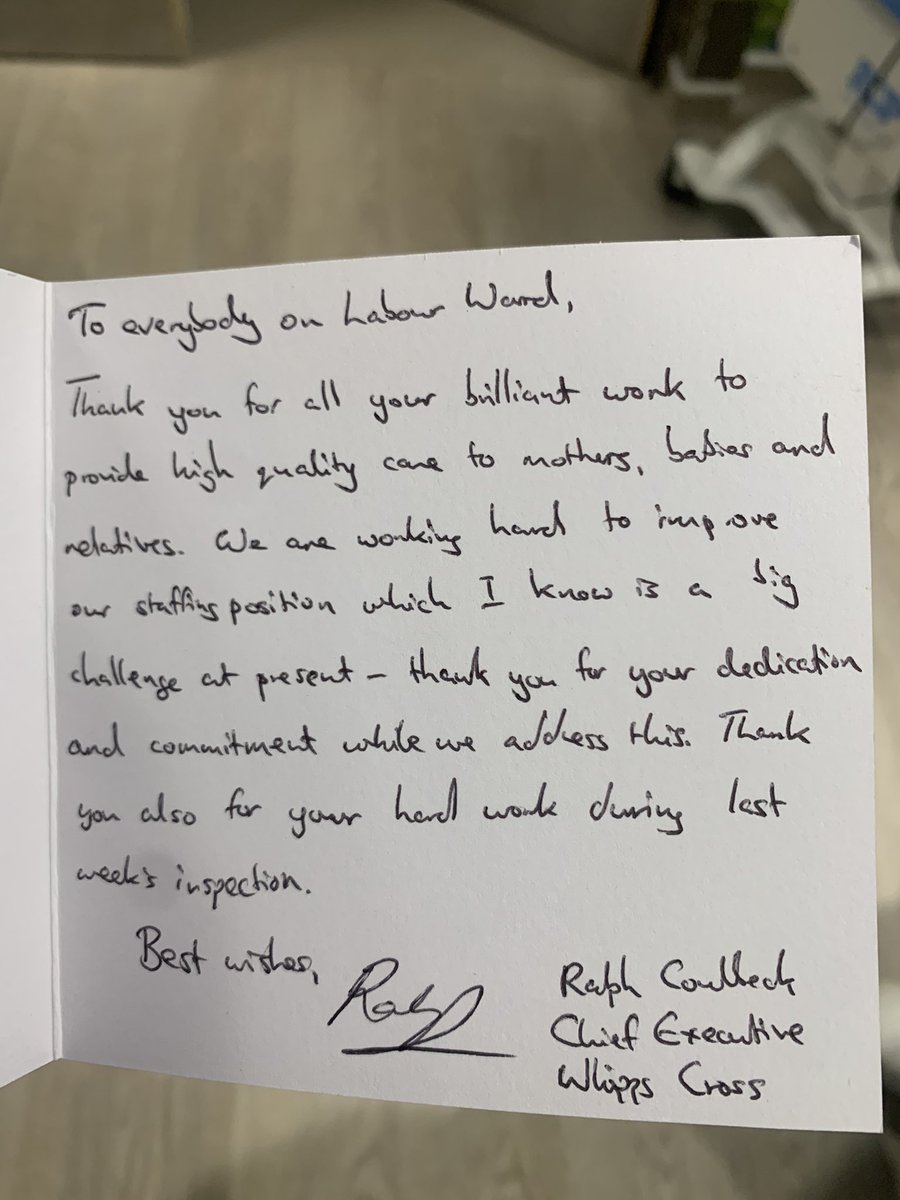 To everybody on Labour Ward,
Thank you for all your brilliant work to
provide high quality care to mothers, babies and
relatives. We are working hard to improve
our staffing position which I know is a big
challenge at present – thank you for your dedication
and commitment while we address this. Thank
you also for your hard work during last
week's inspection.
Best wishes,
Ralph
Ralph Coulbeck
Chief Executive
Whipps Cross